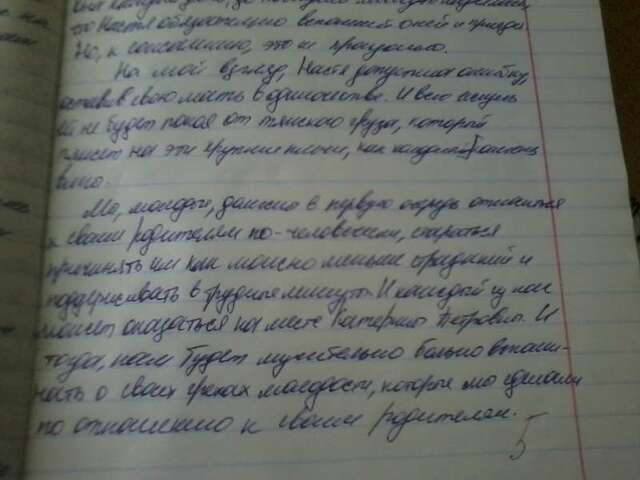 что Настя обязательно вспомнит о ней и приедет
Но, к сожалению, это не произошло.
На мой взгляд, Настя допустила ошибку,
оставив свою мать в одиночестве. И всю жизнь
ей не будет покоя от тяжкого груза, который
ляжет на эти хрупкие плечи, как каждый
вино.
Мы, молодые, должны в первую очередь относиться
к своим родителям по-человечески, стараться
причинять им как можно меньше страданий и
поддерживать в трудные минуты. И каждый из нас
может оказаться на месте Катерины Петровны. И
тогда, нам будет мучительно больно вспоми-
нать о своих грехах молодости, которые мы сделали
по отношению к своим родителям.
5